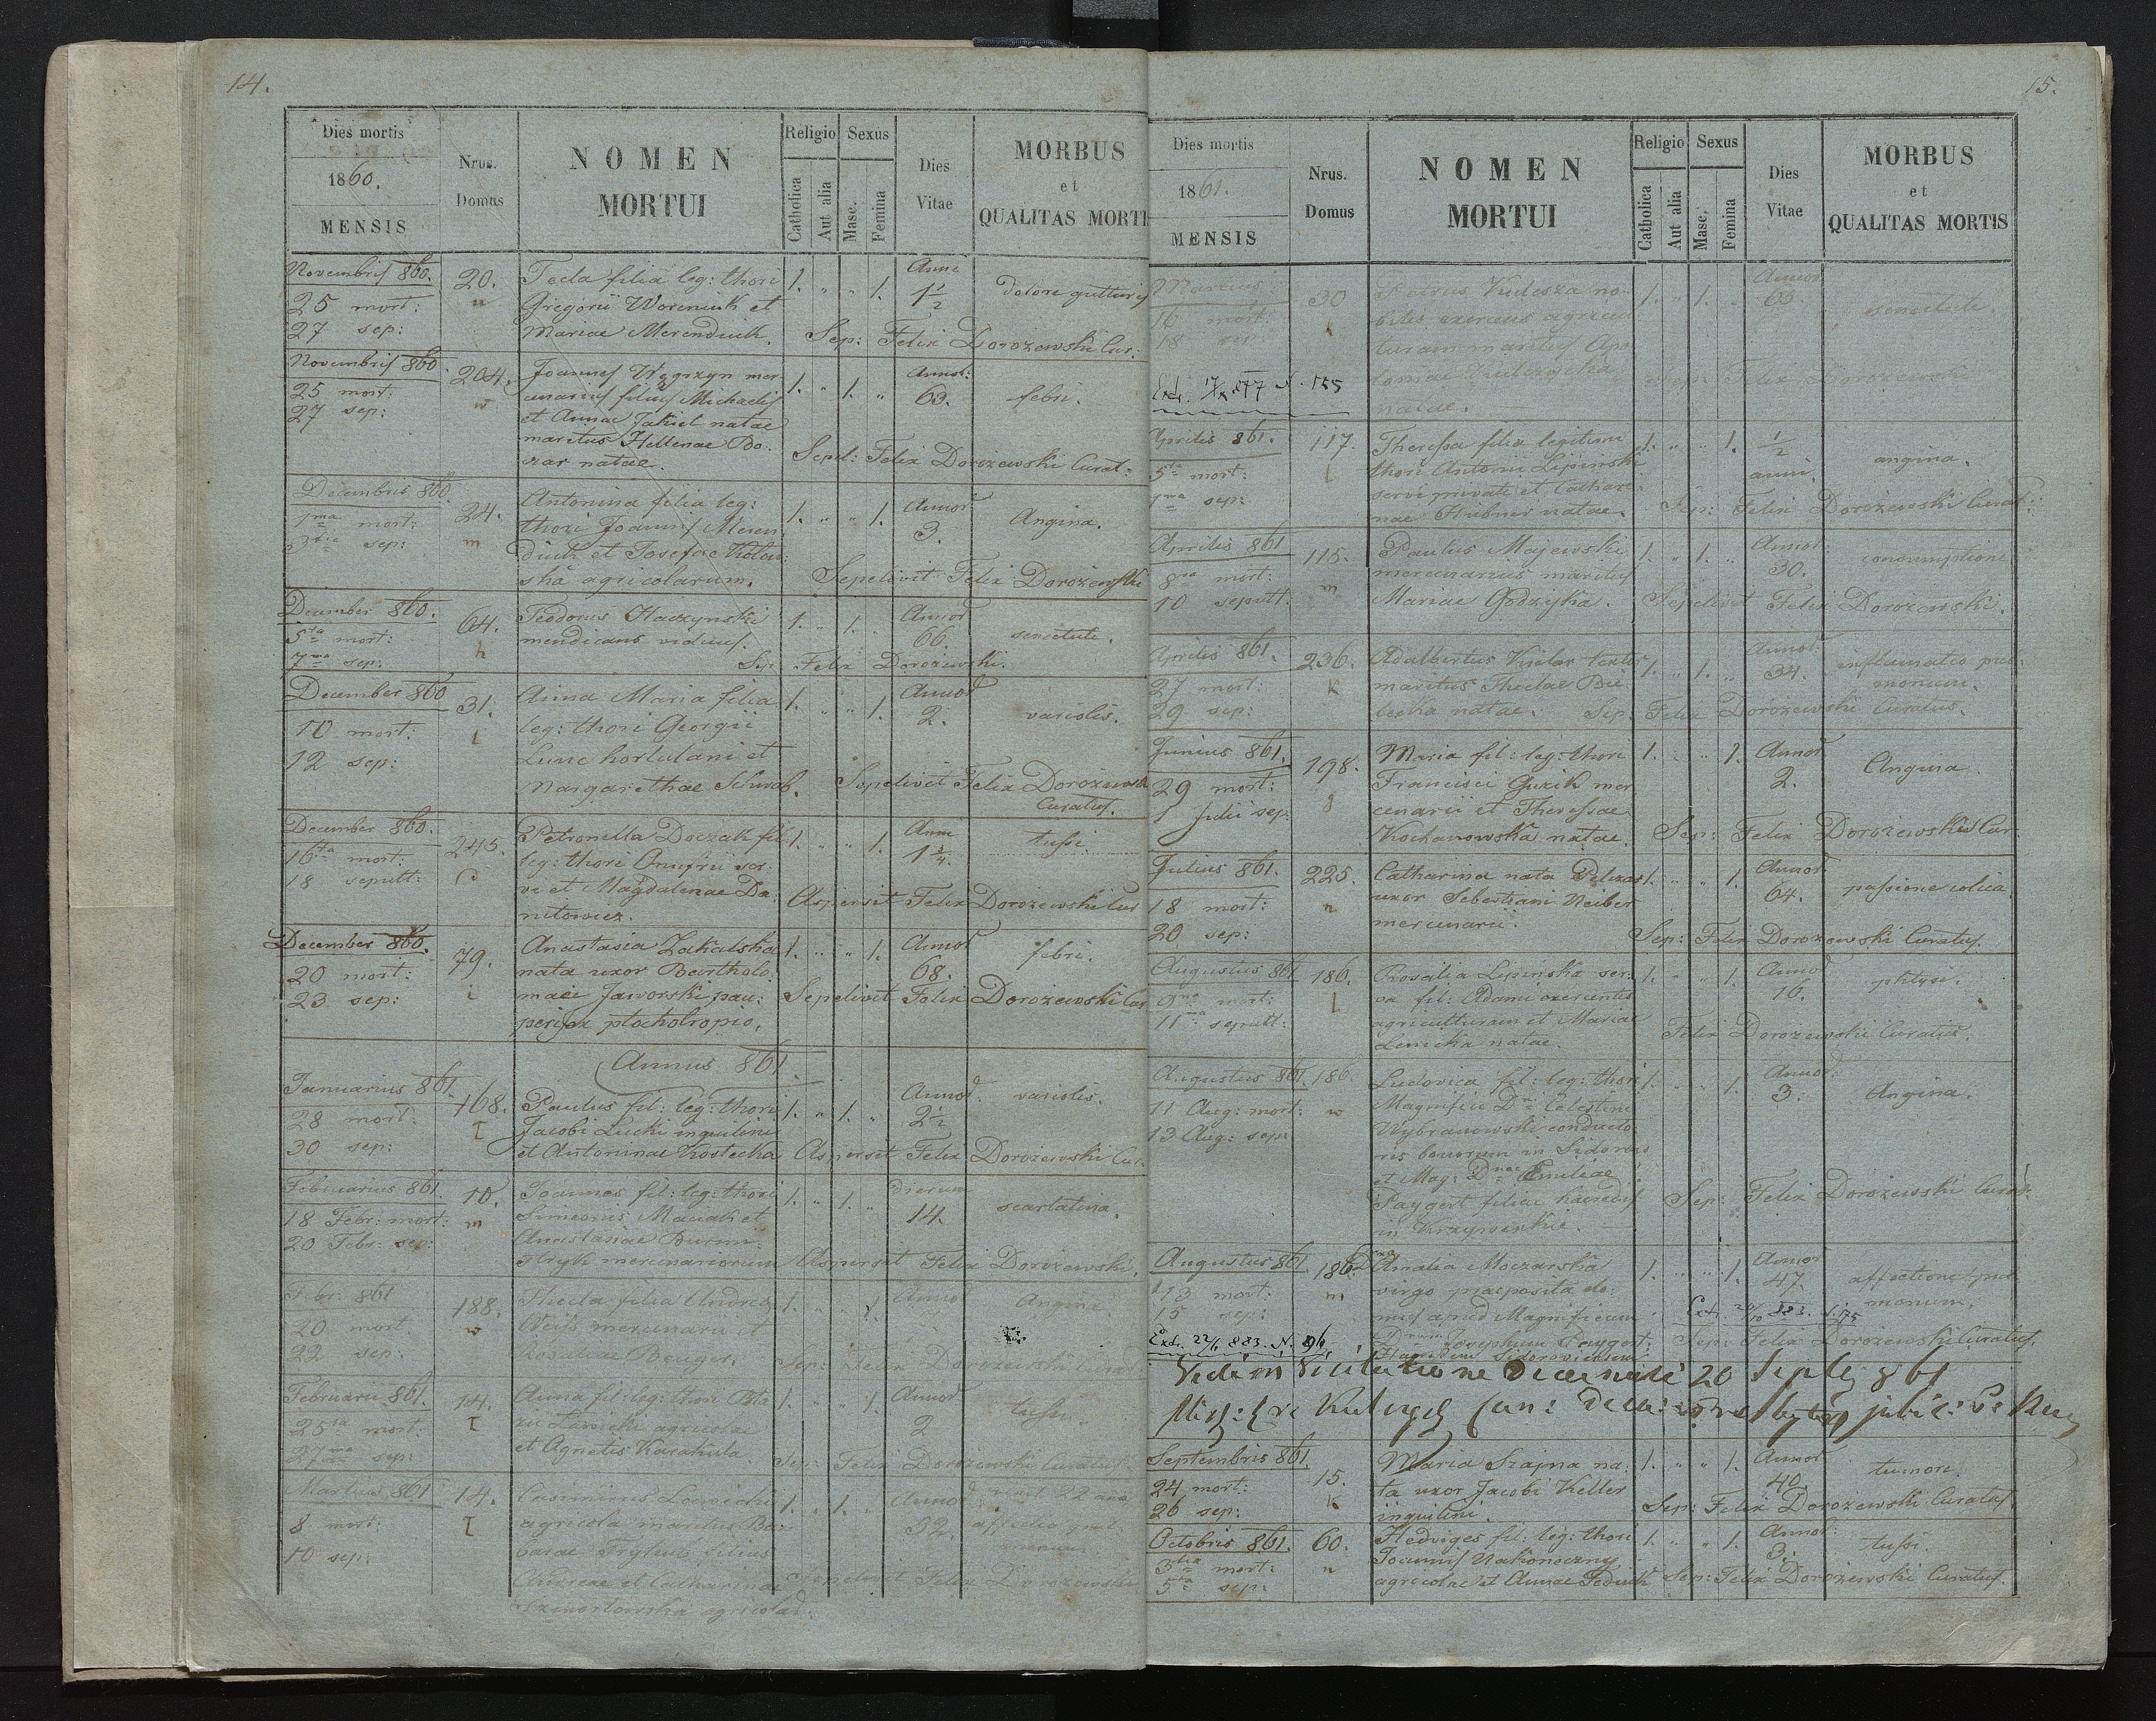 14.
Dies mortis
1860.
MENSIS
Nrus.
Domus
NOMEN
MORTUI
Religio
Catholica
Aut alia
Sexus
Masc.
Femina
Dies
Vitae
MORBUS
et
QUALITAS MORTI
Novembris 860.
25 mort:
27 sep:
20.
Tecla filia leg: thori
Gregorii Woreniuk et
Mariae Merendiuk.
1. " " 1.
Anni
1 1/2
dolore gutturis
Sep: Felix Dorożewski Cur:
Novembris 860
25 mort:
27 sep:
204.
Joannes Węgrzyn mer
cenarius filius Michaelis
et Annae Jakiel natae
maritus Hellenae Bo:
zar natae.
1. " 1. "
Annor:
63.
febri.
Sepel: Felix Dorożewski Curat:
Decembris 860
1ma mort:
3tia sep:
24.
m
Antonina filia leg:
thori Joannis Meren
diuk et Josefae
agricolarum.
1. " " 1.
Annor
3.
Angina.
Sepelivit Felix Dorożewski
December 860.
5ta mort:
7ma sep:
64.
h
Teodorus Haczynski
mendicans viduus.
1. " 1. "
Annor
66.
senectute.
Sep: Felix Dorożewski.
December 860
10 mort:
12 sep:
31.
Anna Maria filia
leg: thori Georgii
Lunc hortulani et
Margarethae Schwab.
1. " " 1.
Annor
2.
variolis.
Sepelivit Felix Dorożewski
Curatus.
December 860.
16ta mort:
18 sepult:
245.
Petronella Doczak fil:
leg: thori Onufrii ser:
vi et Magdalenae Da:
nilowicz.
1. " " 1.
Anni
1 3/4.
tussi.
Aspersit Felix Dorożewski Cur
December 860.
20 mort:
23 sep:
79.
i
Anastasia Zakalska
nata uxor Bartholo:
maei Jaworski pau:
peris ex ptochotropio.
1. " " 1.
Annor
68.
febri.
Sepelivit Felix Dorożewski Cur
Annus 861
Januarius 861.
28 mort:
30 sep:
168.
Paulus fil: leg: thori
Jacobi Lucki inquilini
et Antoninae Kostecka
1. " 1. "
Annor.
2 1/2
variolis.
Aspersit Felix Dorożewski Cur.
Februarius 861.
18 Febr: mort:
20 Febr: sep:
10.
m
Joannes fil: leg: thori
Simeonis Maciak et
Anastasiae
mercenariorum
1. " 1. "
Dierum
14.
scarlatina.
Aspersit Felix Dorożewski.
Febr: 861
20 mort
22 sep:
188.
w
Thecla filia Andreae
Weis mercenarii et
Rosaliae Benger.
1. " " 1.
Annor
Angina.
Sep: Felix Dorożewski
Februarii 861.
25ta mort:
27ma sep:
14.
Anna fil: leg: thori Bla
zii Lewicki agricolae
et Agnetis Karakula
1. " " 1.
Annor
2
tussi.
Sep: Felix Dorożewski Curatus
Martius 861
8 mort:
10 sep:
14.
Casimirus Lewicki
agricola maritus Bar
barae filius
Andreae et Catharinae
agricolar:
1. " 1. "
Annor
32.
Sepelivit Felix Dorożewski
15.
Dies mortis
1861.
MENSIS
Nrus.
Domus
NOMEN
MORTUI
Religio
Catholica
Aut alia
Sexus
Masc.
Femina
Dies
Vitae
MORBUS
et
QUALITAS MORTIS
Martius
16 mort:
18 sep:
30
Petrus Kulesza no
bilis exercens agricul
turam maritus Apo
loniae
natae.
1. " 1. "
Annor
63.
senectute.
Sep: Felix Dorożewski
Extr. 17/X 877 N. 155
Aprilis 861.
5ta mort:
7ma sep:
117.
l
Theressa filia legitimi
thori Antonii Lipinski
servi privati et Cathari:
nae Hubner natae.
1. " " 1.
1/2
anni.
angina.
Sep: Felix Dorożewski Curat:
Aprilis 861
8va mort:
10 sepult:
118.
m
Paulus Majewski
mercenarius maritus
Mariae Godzijka.
1. " 1. "
Annor:
30.
consumptione
Sepelivit Felix Dorożewski.
Aprilis 861.
27 mort:
29 sep:
236.
K
Adalbertus textor
maritus Theclae Bie
lecka natae.
1. " 1. "
Annor
34.
inflamatio pul:
monum.
Sep: Felix Dorożewski Curatus.
Junius 861.
29 mort:
1 Julii sep:
198.
g
Maria fil: leg: thori
Francisci Guzik mer
cenarii et Theressae
Kochanowska natae.
1. " " 1.
Annor
2.
Angina.
Sep: Felix Dorożewski Cur.
Julius 861.
18 mort:
20 sep:
225.
n
Catharina nata Pelczar
uxor Sebestiani Neiber
mercenarii.
1. " " 1.
Annor
64.
passione colica
Sep: Felix Dorożewski Curatus.
Augustus 861
9na mort:
11ma sepult:
186.
l
Rosalia Lipinska ser:
va fil: Adami exercentis
agriculturam et Mariae
Lenicka natae.
1. " " 1.
Annor
16.
phtysi.
Felix Dorożewski Curatus.
Augustus 861.
11 Aug: mort:
13 Aug: sep:
186
w
Ludovica fil: leg: thori
Magnifici Dni Celestini
Wybranowski conducto:
ris bonorum in Sidorow
et Mag: Dnae Emiliae
Paygert filiae haeredis
in Krzyweńkie.
1. " " 1.
Annor:
3.
Angina.
Sep: Felix Dorożewski Curat:
Augustus 861
13 mort:
15 sep:
186.
m
Amalia Moczarska
virgo praeposita do:
mus apud Magnificum
Dominum Josephum Paygert
1. " " 1.
Annor
47.
affectione pul
monum.
Extr. 20/10 883. N. 175
Sep: Felix Dorożewski Curatus.
Extr. 22/1 883. N. 86.
Vidi in Visitatione Decanali 20 Septbr 861
Septembris 861.
24 mort:
26 sep:
15.
K
Maria Szajna na:
ta uxor Jacobi Keller
inquilini.
1. " " 1.
Annor
40.
tumore.
Sep: Felix Dorożewski Curatus.
Octobris 861.
3tia mort:
5ta sep:
60.
n
Hedviges fil: leg: thori
Joannis Nakoneczny
agricolae et Annae Feduik
1. " " 1.
Annor:
3.
tussi.
Sep: Felix Dorożewski Curatus.